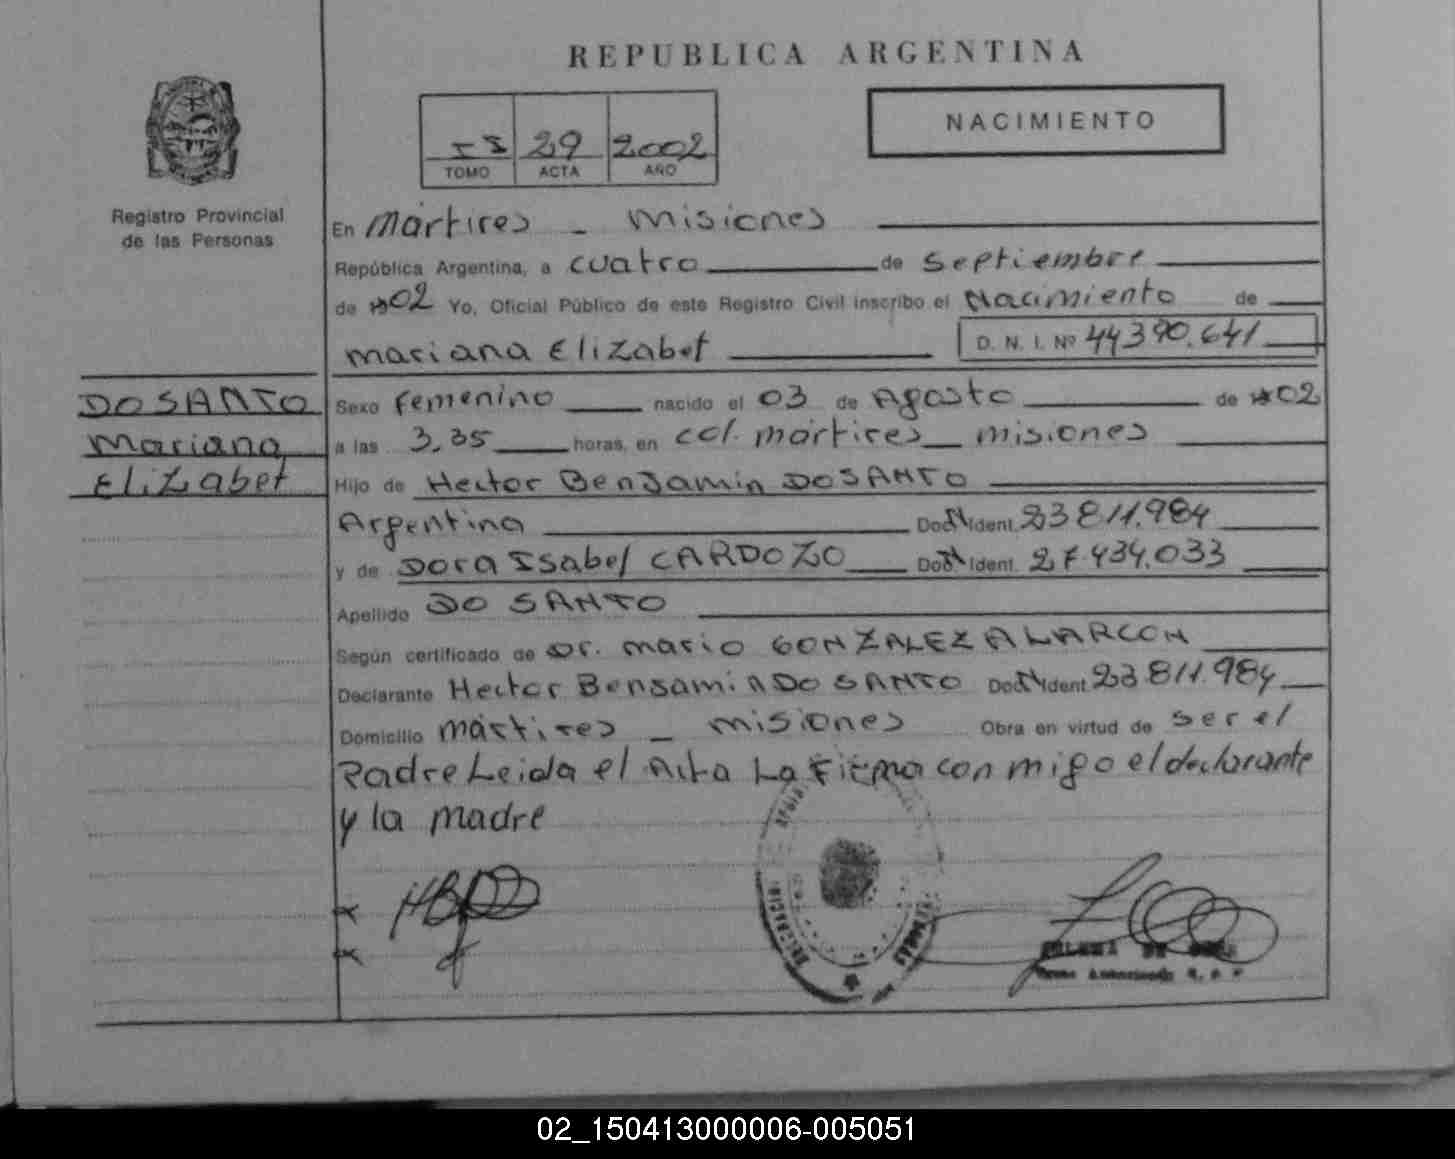 REPUBLICA ARGENTINA
NACIMIENTO
II 29 2002
TOMO ACTA AÑO
Registro Provincial
de las Personas
En Mártires - Misiones
República Argentina, a cuatro de Septiembre
de 02 Yo, Oficial Público de este Registro Civil inscribo el Nacimiento de
Mariana Elizabet D. N. I. Nº 44390.641
DO SANTO
Mariana
Elizabet
Sexo Femenino nacido el 03 de Agosto de 02
a las 3,35 horas, en col. Mártires - Misiones
Hijo de Hector Benjamin DO SANTO
Argentina Doc. Ident. 23811.984
y de Dora Isabel CARDOZO Doc. Ident. 27.434.033
Apellido DO SANTO
Según certificado de Dr. Mario GONZALEZ ALARCON
Declarante Hector Bensamin DO SANTO Doc. Ident. 23811.984
Domicilio Mártires - Misiones Obra en virtud de ser el
Padre Leida el Acta La Firma con migo el declarante
y la madre
02_150413000006-005051